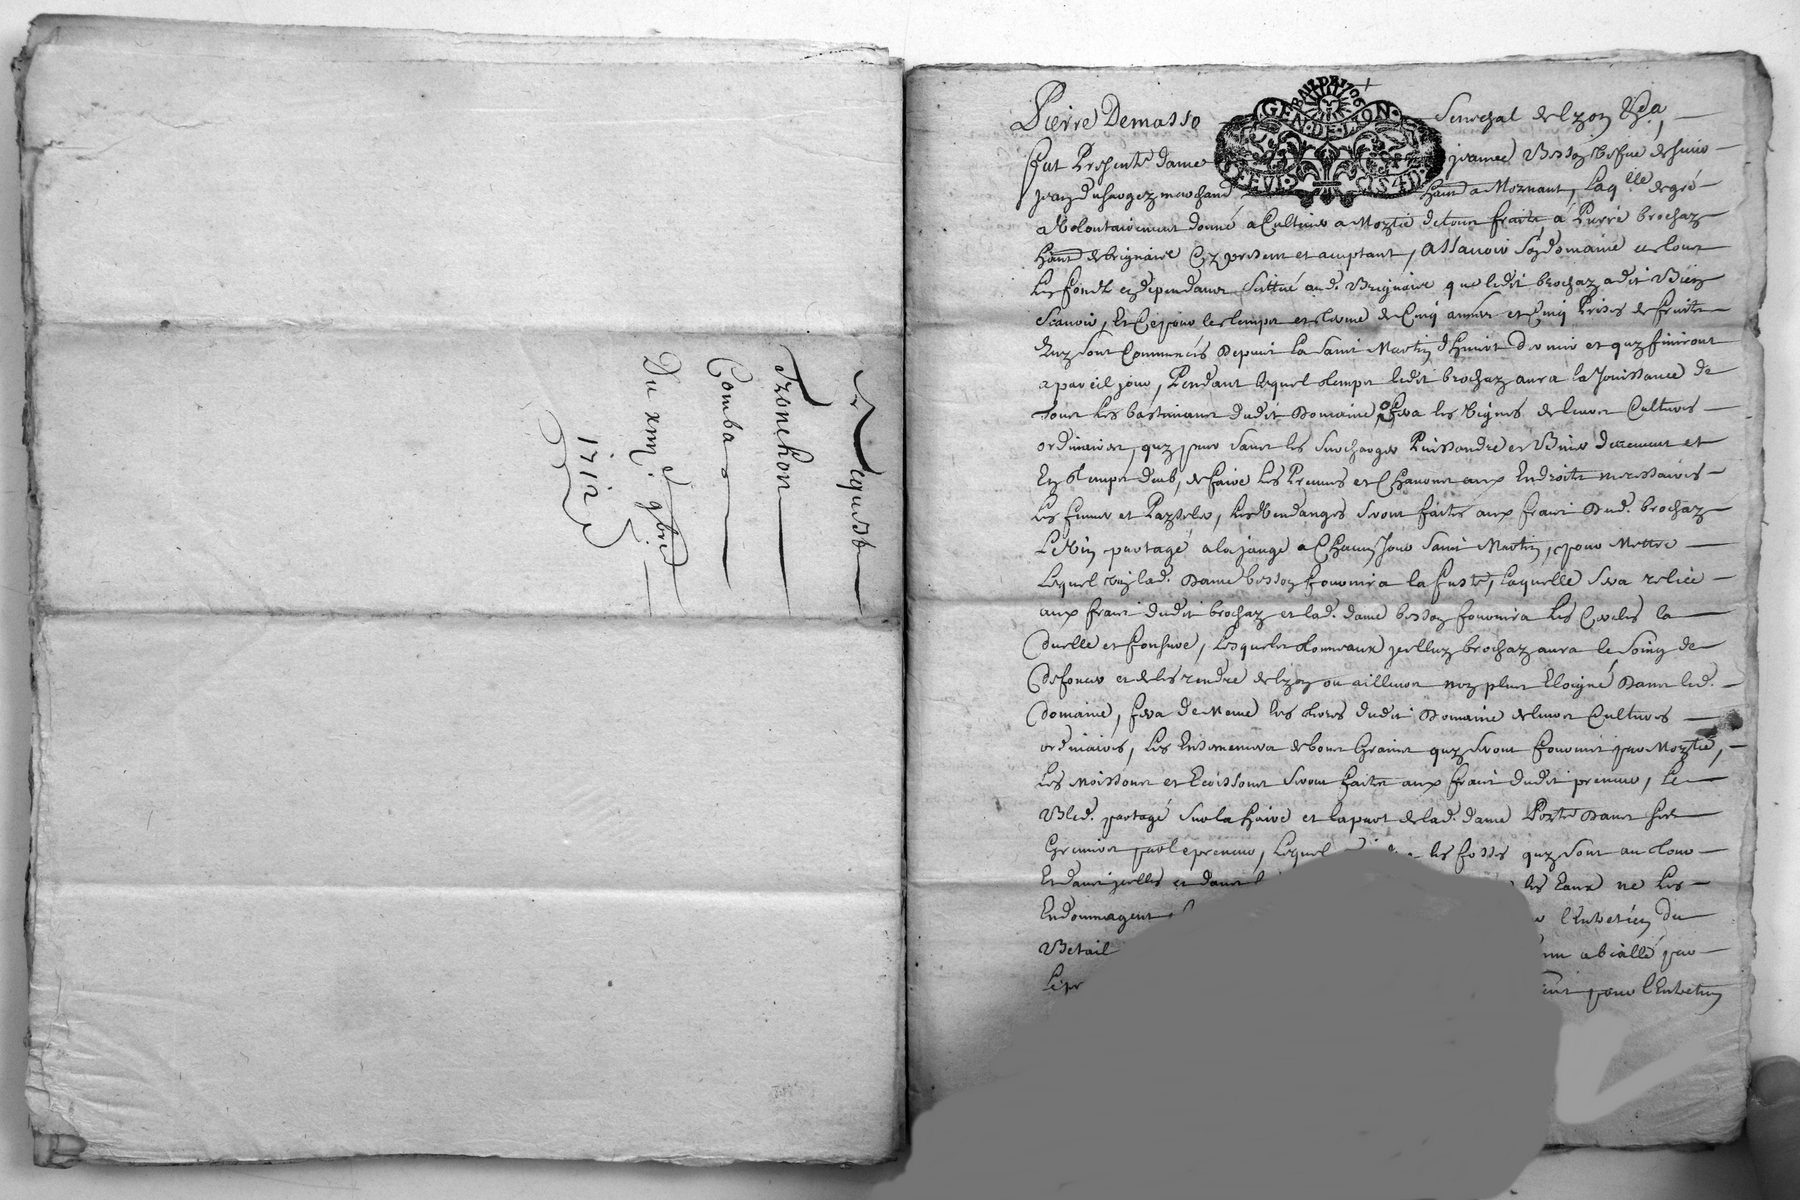 Requeste
Tronchon
Combas
Du xiiii.e 9bre
1712
Pierre Demasso Senechal de Lyon &a
BAIL DE 1706
GEN · DE · LION
DEUX S 4 D
fut Presente dame jeanne Besson vefve de sieur
jean marchand habt a Mornant, Laqlle de gré
a Volontairement donné a Cultiver a Moytié de tous fruits, a Pierre brochay
habt de brignais Cy present et acceptant, assavoir son domaine et tous
Les fonds en dependants Scittué aud. Brignais que ledit brochay a dit Bien
Scavoir, Et Ce pour le temps et terme de Cinq années et Cinq Prises de fruits
quy sont Commencés Depuis la saint Martin d'hiver dernier et quy finiront
a pareil jour, Pendant lequel temps ledit brochay aura la Jouissance de
tous Les bastiments dudit Domaine, fera les Vignes de leurs Cultures
ordinaires, quy pour sans les surcharger Puissandre et Biner deüement et
En temps deub, de faire Les Preuves et Chanones aux Endroits necessaires
Les fumer et Paysseler, Les Vendanges seront faites aux frais Dud. brochay
Le Vin partagé a la jauge a Chacun Jour Saint Martin, pour Mettre
Lequel vin lad. Dame besson fournira la fuste, laquelle sera reliée
aux frais dudit brochay et lad. dame besson fournira Les Cercles la
duelle et fonsure, Lesquels tonneaux icelluy brochay aura le soing de
defoncer et de les rendre de Lyon ou ailleurs non plus Eloigné Dans led.
Domaine, fera de Meme les terres dudit Domaine de leurs Cultures
ordinaires, Les Ensemencera de bons Grains quy seront fournis par Moytié,
Les Moissons et Ecossons seront faites aux frais dudit preneur, Le
Bled. partagé sur la haire et la part de lad. dame Porté Dans ses
Greniers par le preneur, Lequel les fossés quy sont au tour
Et dans icelles et dans les Eaux ne Les
Endommagent l'Entretien Du
Betail abiallé par
Le pr pour l'Entretien